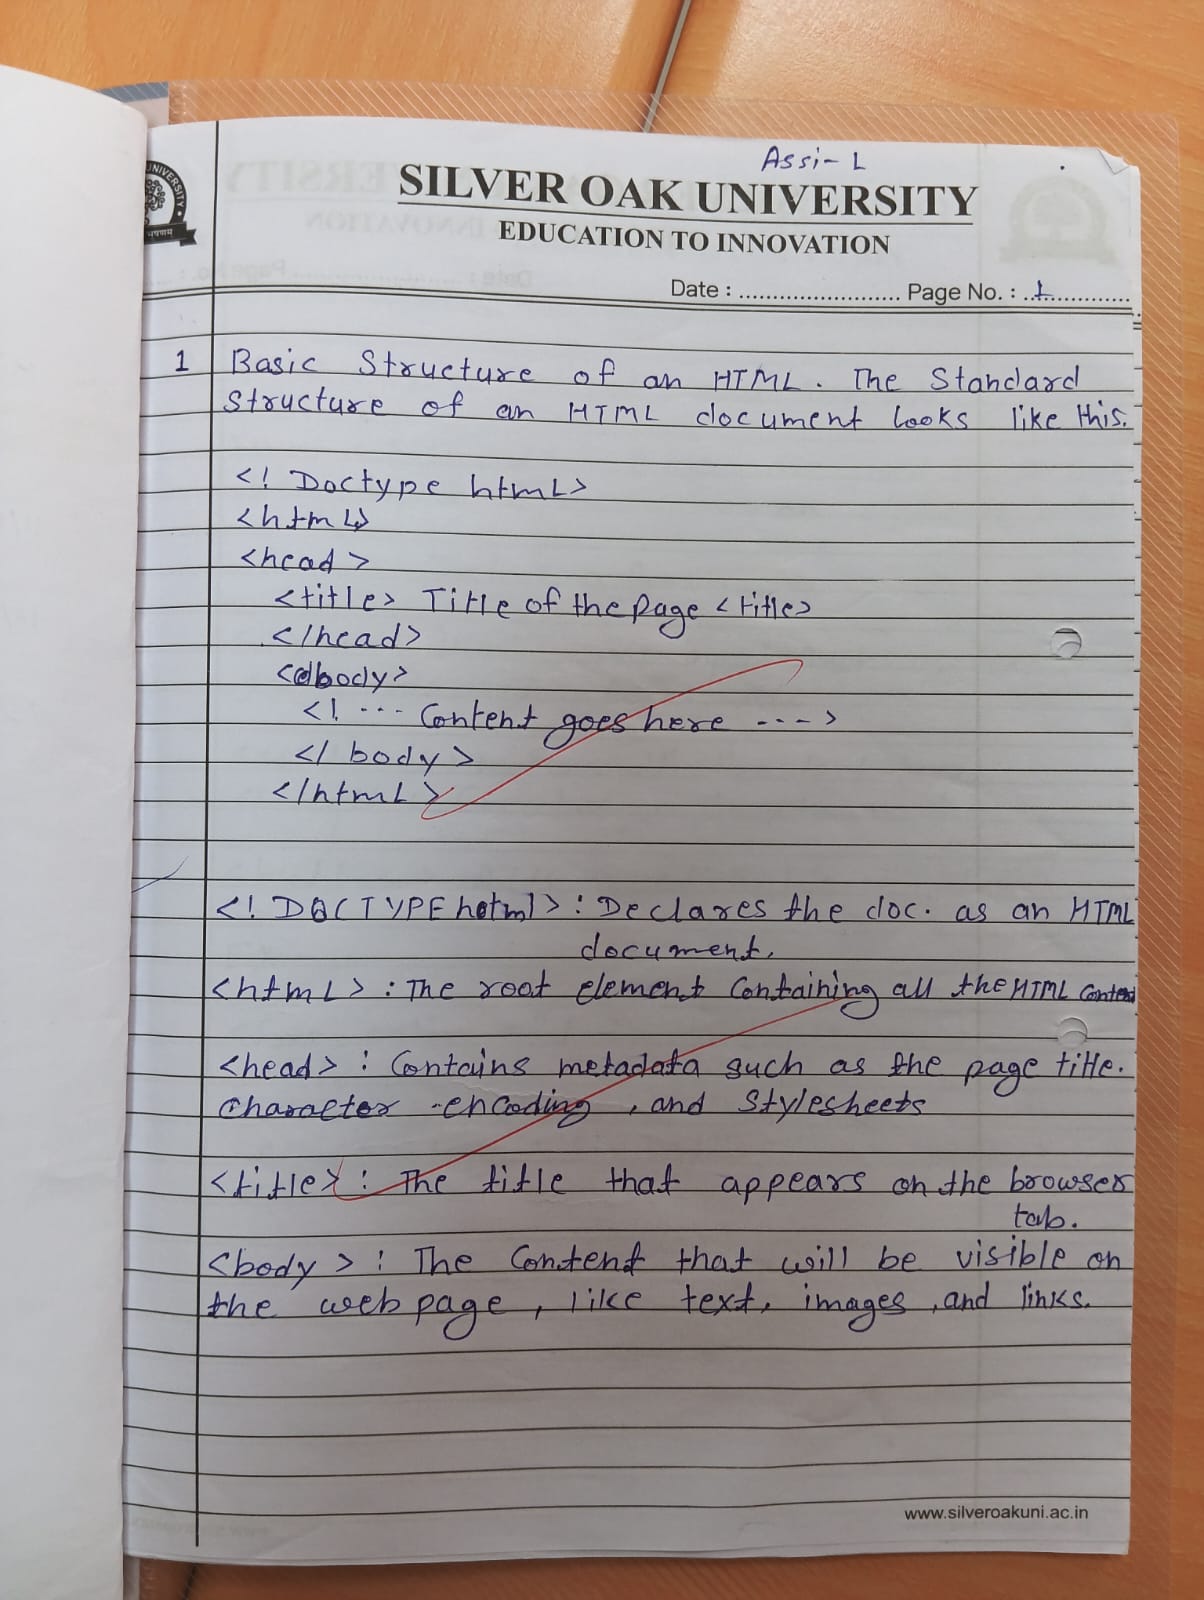 Assi-1
UNIVERSITY
SILVER OAK UNIVERSITY
EDUCATION TO INNOVATION
Date : ........................ Page No. : ..1.............
1 Basic Structure of an HTML. The Standard
Structure of an HTML document looks like this.
<! Doctype html>
<html>
<head>
<title> Title of the page <title>
</head>
<body>
<! --- Content goes here ---->
</ body>
</html>
<! DOCTYPE html> : Declares the doc. as an HTML
document.
<html> : The root element containing all the HTML content
<head> : Contains metadata such as the page title.
Character -encoding , and Stylesheets
<title> : The title that appears on the browser
tab.
<body > : The Content that will be visible on
the web page , like text, images , and links.
www.silveroakuni.ac.in